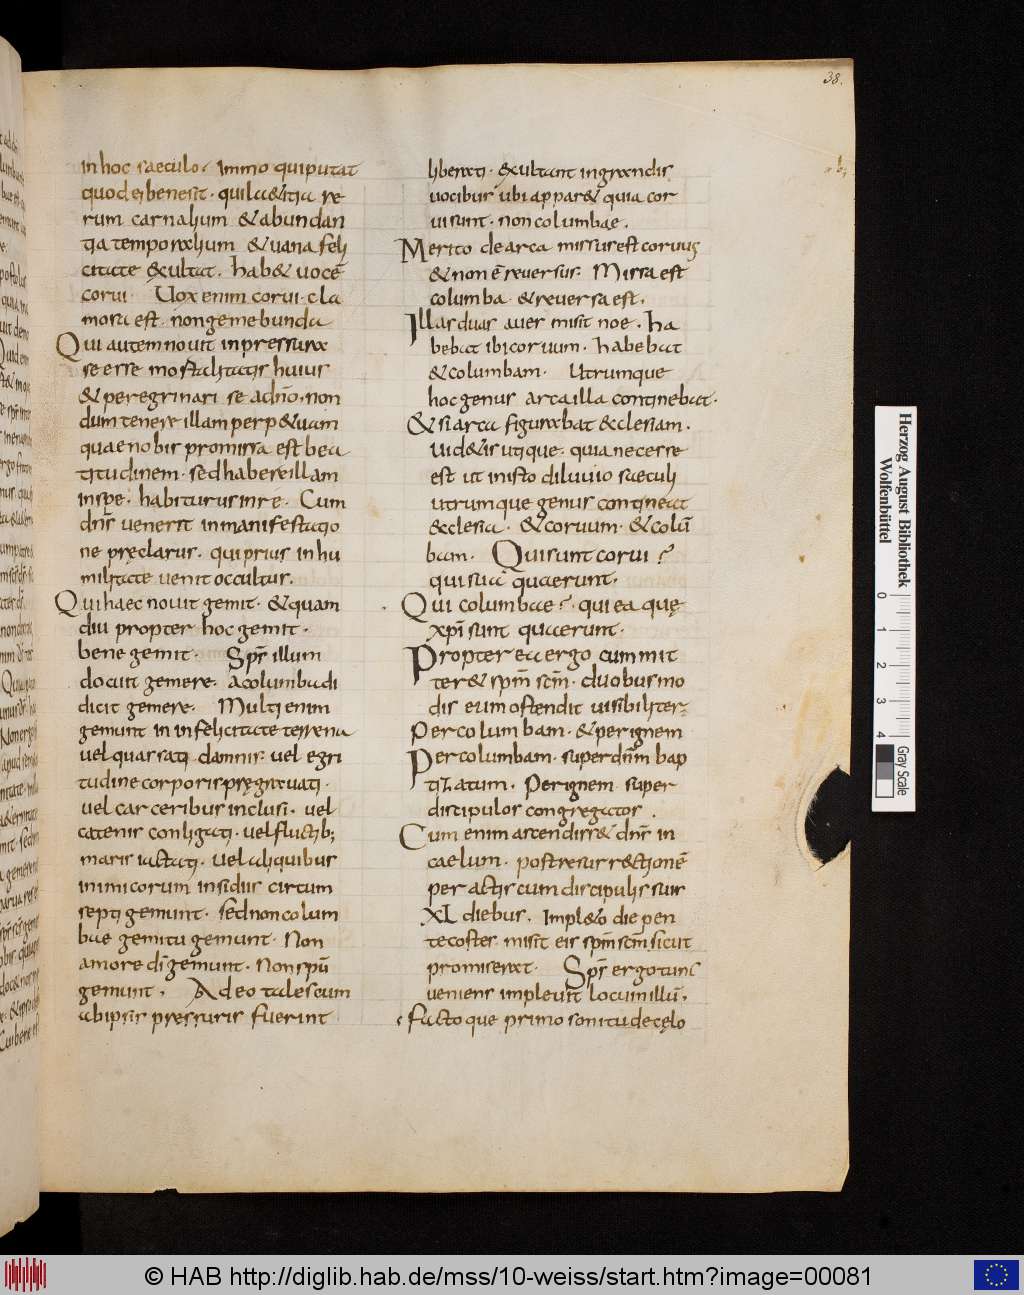 38.
in hoc saeculo. Immo qui putat
quod ei bene sit. qui laetitia re
rum carnalium & abundan
tia temporalium & uana feli
citate exultat. hab& uocē
corui. Uox enim corui. cla
mosa est. non gemebunda
Qui autem nouit in pressura
se esse mortalitatis huius
& peregrinari se ad dño. non
dum tenere illam perp&uam
quae nobis promissa est bea
titudinem. sed habere illam
in spe. habiturus in re. Cum
dñs uenerit in manifestatio
ne pręclarus. qui prius in hu
militate uenit occultus.
Qui haec nouit gemit. & quam
diu propter hoc gemit.
bene gemit. Sps̄ illum
docuit gemere. a columba di
dicit gemere. Multi enim
gemunt in infelicitate terrena
uel quassati damnis. uel egri
tudine corporis pręgrauati.
uel carceribus inclusi. uel
catenis conligati. uel fluctib;
maris iactati. uel aliquibus
inimicorum insidiis circum
septi gemunt. sed non colum
bae gemitu gemunt. Non
amore dī gemunt. Non spū
gemunt. Adeo tales cum
ab ipsis pressuris fuerint
liberati. exultant in grandis
uocibus ubi appar& quia cor
ui sunt. non columbae.
Merito de arca missus est coruus
& non ē reuersus. Missa est
columba. & reuersa est.
Illas duas aues misit noe. ha
bebat ibi coruum. habebat
& columbam. Utrumque
hoc genus arca illa continebat.
& si arca figurabat ecclesiam.
uidetis utique. quia necesse
est ut in isto diluuio saeculi
utrumque genus contineat
ecclesia. & coruum. & colū
bam. Qui sunt corui?
qui sua quaerunt.
Qui columbae? qui ea quę
xp̄i sunt quaerunt.
Propterea ergo cum mit
ter& spm̄ scm̄. duobus mo
dis eum ostendit uisibiliter.
Per columbam. & per ignem
Per columbam. super dn̄m bap
tizatum. Per ignem super
discipulos congregatos.
Cum enim ascendiss& dn̄s in
caelum. post resurrectionē
per actis cum discipulis suis
XL diebus. Impl&o die pen
tecostes misit eis spm̄ scm̄. sicut
promiserat. Sps̄ ergo tunc
ueniens impleuit locum illū.
facto que primo sonitu de cęlo
Herzog August Bibliothek
Wolfenbüttel
0 1 2 3 4
Gray Scale
© HAB http://diglib.hab.de/mss/10-weiss/start.htm?image=00081